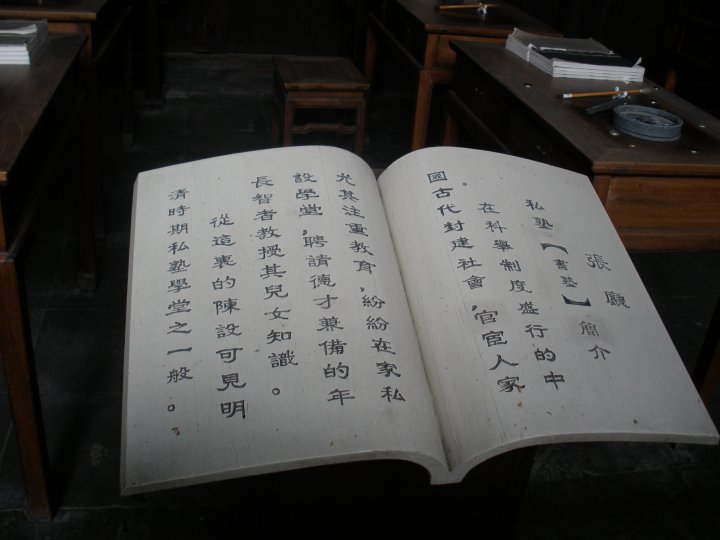 張廳
私塾【書塾】簡介
在科舉制度盛行的中
國古代封建社會，官宦人家
尤其注重教育，紛紛在家私
設學堂，聘請德才兼備的年
長智者教授其兒女知識。
從這裏的陳設可見明
清時期私塾學堂之一般。